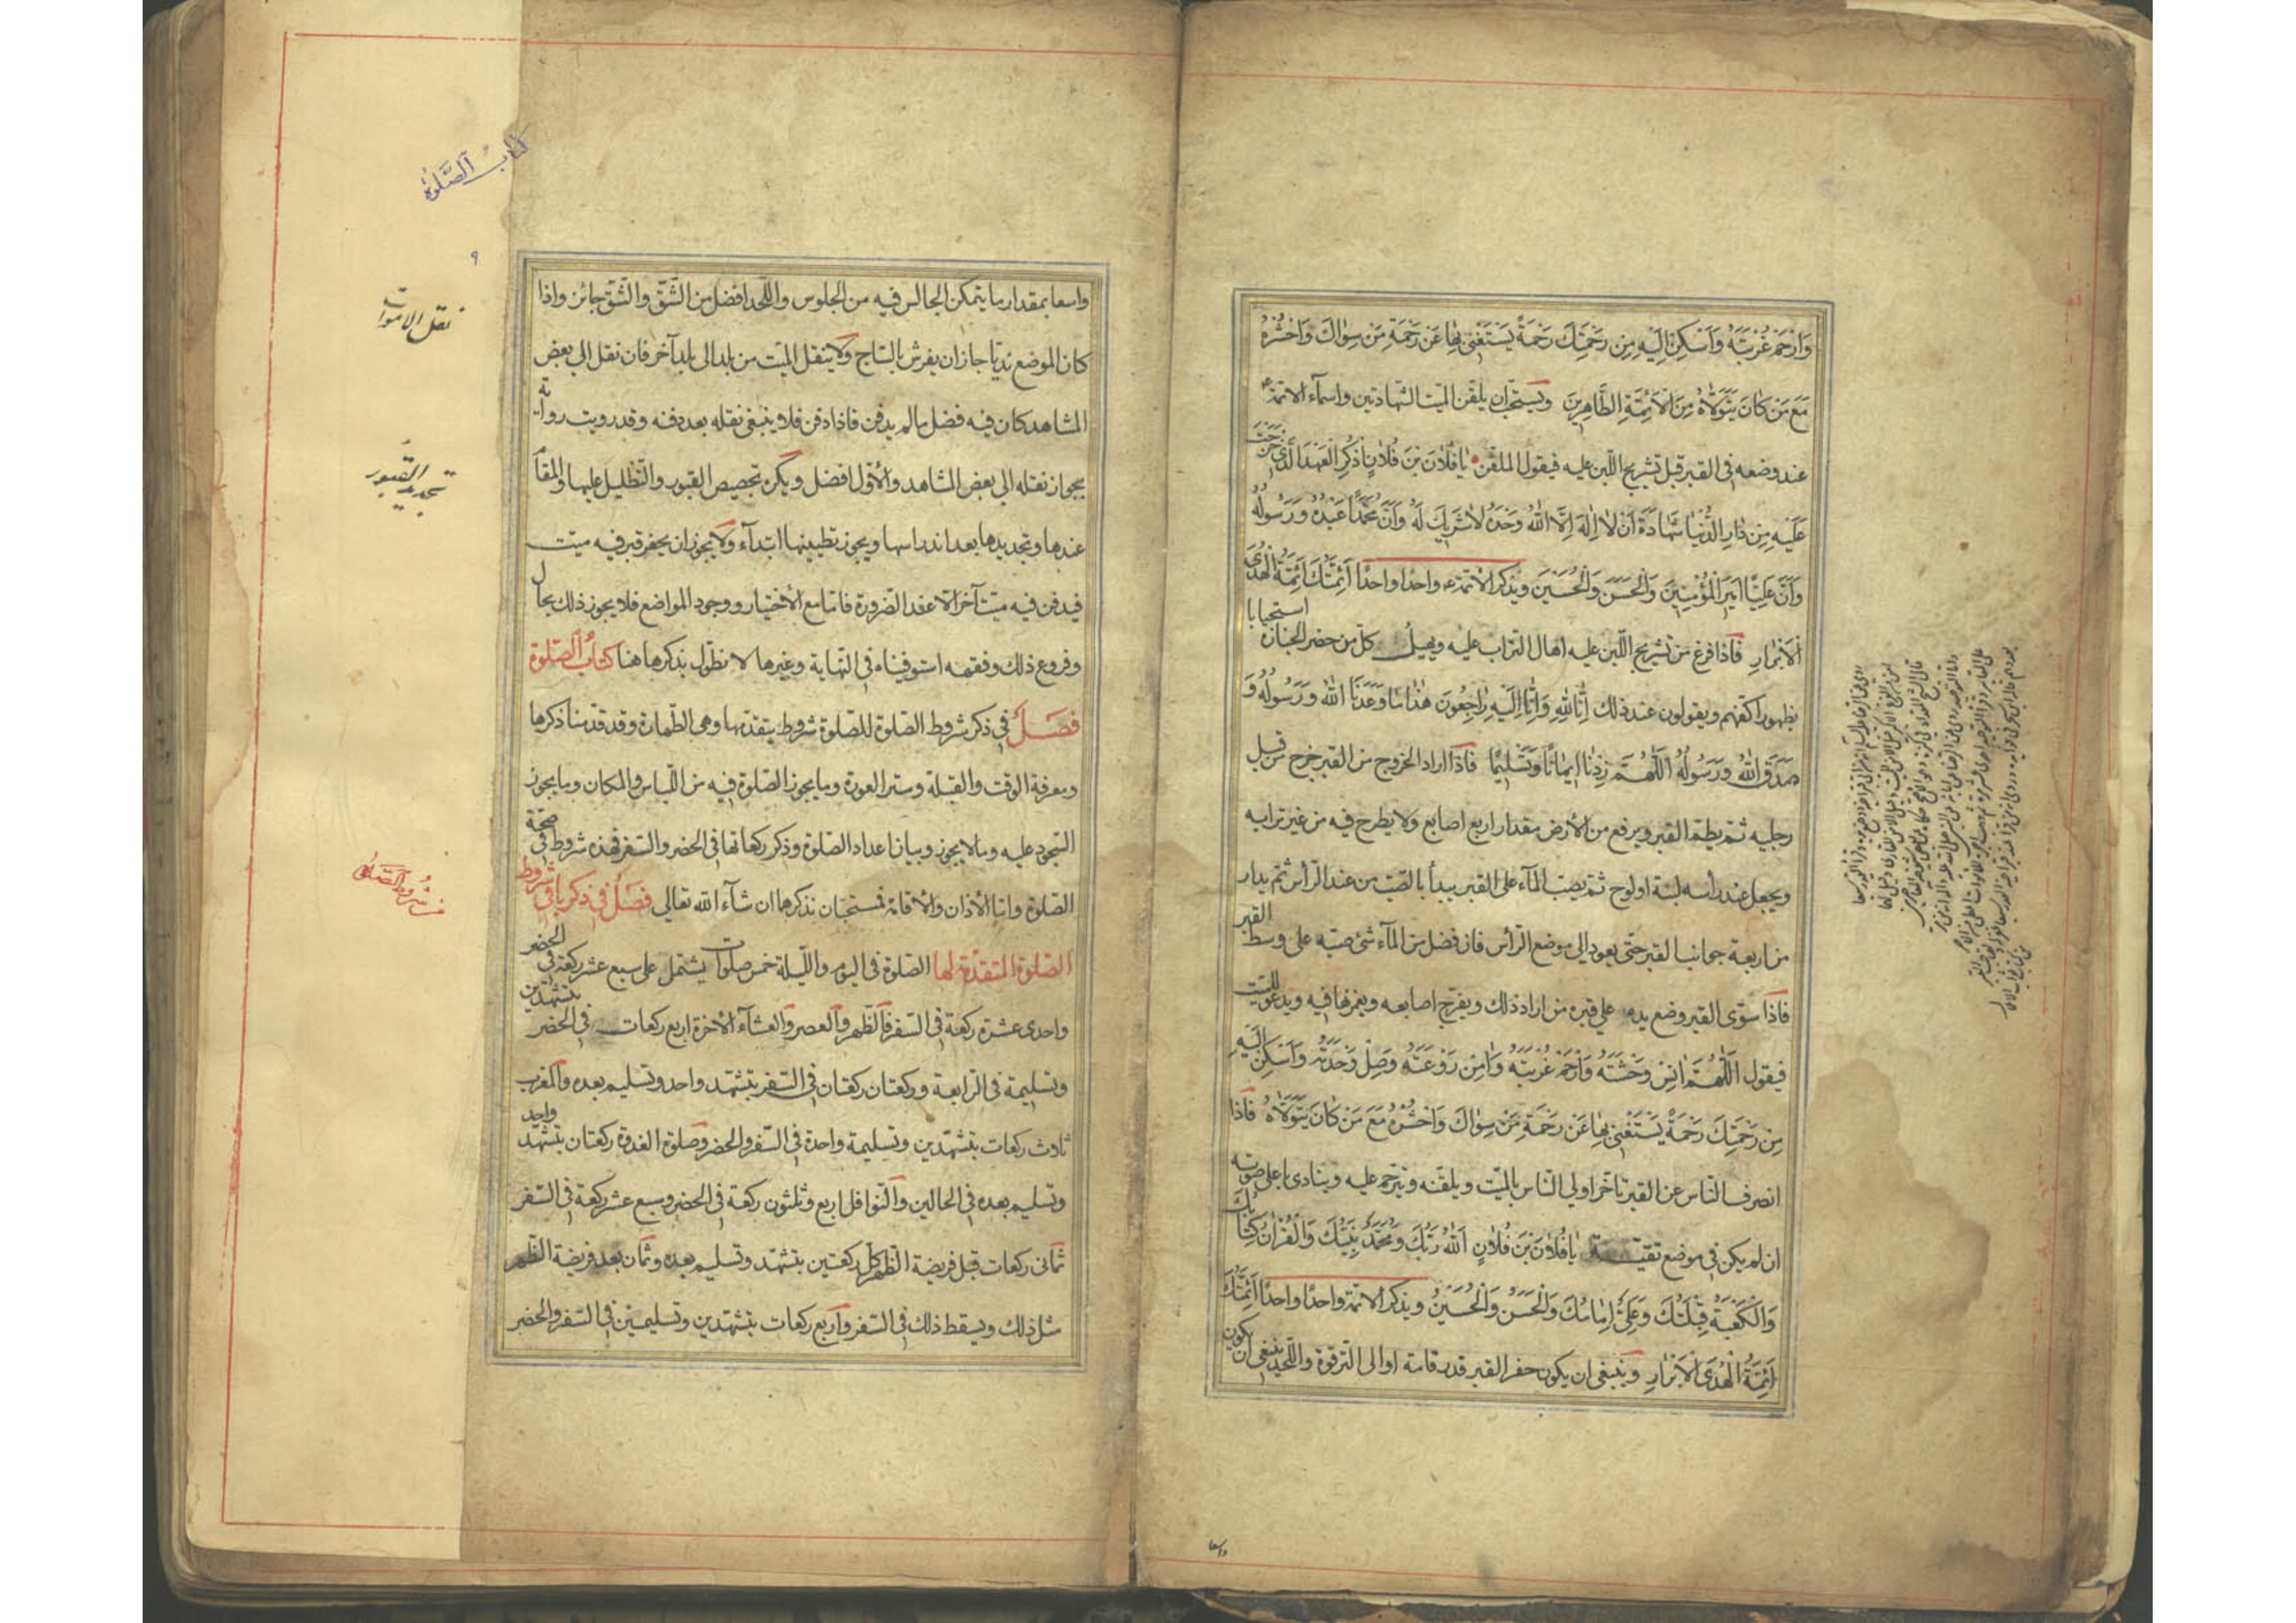 وَارْحَمْ غُرْبَتَهُ وَاَسْكِنْ اِلَيْهِ مِنْ رَحْمَتِكَ رَحْمَةً يَسْتَغْنِي بِهَا عَنْ رَحْمَةِ مَنْ سِوَاكَ وَاحْشُرْهُ
مَعَ مَنْ كَانَ يَتَوَلَّاهُ مِنَ الْاَئِمَّةِ الطَّاهِرِينَ ويستحب ان يلقن الميت الشهادتين واسماء الائمة ع
عند وضعه في القبر قبل تشريج اللبن عليه فيقول الملقن يَا فُلَانَ بْنَ فُلَانٍ اُذْكُرِ الْعَهْدَ الَّذِي خَرَجْتَ
عَلَيْهِ مِنْ دَارِ الدُّنْيَا شَهَادَةَ اَنْ لَا اِلٰهَ اِلَّا اللهُ وَحْدَهُ لَا شَرِيكَ لَهُ وَاَنَّ مُحَمَّدًا عَبْدُهُ وَرَسُولُهُ
وَاَنَّ عَلِيًّا اَمِيرُ الْمُؤْمِنِينَ وَالْحَسَنَ وَالْحُسَيْنَ ويذكر الائمة ع واحدا واحدا اَئِمَّتُكَ اَئِمَّةُ الْهُدَى
الْاَبْرَارِ فاذا فرغ من تشريج اللبن عليه اهال التراب عليه ويهيل كل من حضر الجنازة استحبابا
بظهور اكفهم ويقولون عند ذلك اِنَّا لِلّٰهِ وَاِنَّا اِلَيْهِ رَاجِعُونَ هٰذَا مَا وَعَدَنَا اللهُ وَرَسُولُهُ وَ
صَدَقَ اللهُ وَرَسُولُهُ اَللّٰهُمَّ زِدْنَا اِيمَانًا وَتَسْلِيمًا فاذا اراد الخروج من القبر خرج من قبل
رجليه ثم يطم القبر ويرفع من الارض مقدار اربع اصابع ولا يطرح فيه من غير ترابه
ويجعل عند راسه لبنة او لوح ثم يصب الماء على القبر يبدأ بالصب من عند الراس ثم يدار
من اربعة جوانب القبر حتى يعود الى موضع الراس فان فضل من الماء شئ صبه على وسط القبر
فاذا سوى القبر وضع يده على قبره من اراد ذلك ويفرج اصابعه ويغمزها فيه ويدعو للميت
فيقول اَللّٰهُمَّ اٰنِسْ وَحْشَتَهُ وَارْحَمْ غُرْبَتَهُ وَاٰمِنْ رَوْعَتَهُ وَصِلْ وَحْدَتَهُ وَاَسْكِنْ اِلَيْهِ
مِنْ رَحْمَتِكَ رَحْمَةً يَسْتَغْنِي بِهَا عَنْ رَحْمَةِ مَنْ سِوَاكَ وَاحْشُرْهُ مَعَ مَنْ كَانَ يَتَوَلَّاهُ فاذا
انصرف الناس عن القبر تاخر اولى الناس بالميت ويلقنه ويترحم عليه وينادى باعلى صوته
ان لم يكن في موضع تقية يَا فُلَانَ بْنَ فُلَانٍ اَللهُ رَبُّكَ وَمُحَمَّدٌ نَبِيُّكَ وَالْقُرْاٰنُ كِتَابُكَ
وَالْكَعْبَةُ قِبْلَتُكَ وَعَلِيٌّ اِمَامُكَ وَالْحَسَنُ وَالْحُسَيْنُ ويذكر الائمة واحدًا واحدًا اَئِمَّتُكَ
اَئِمَّةُ الْهُدَى الْاَبْرَارِ وينبغي ان يكون حفر القبر قدر قامة او الى الترقوة واللحد ينبغي ان يكون
واسعا
كتاب الصلوة
٩
واسعا بمقدار ما يتمكن الجالس فيه من الجلوس واللحد افضل من الشق والشق جائز واذا
كان الموضع نديا جاز ان يفرش بالساج ولا ينقل الميت من بلد الى بلد آخر فان نقل الى بعض
المشاهد كان فيه فضل ما لم يدفن فاذا دفن فلا ينبغي نقله بعد دفنه وقد رويت رواية
بجواز نقله الى بعض المشاهد والاول افضل ويكره تجصيص القبور والتظليل عليها والمقام
عندها وتجديدها بعد اندراسها ويجوز تطيينها ابتداء ولا يجوز ان يحفر قبر فيه ميت
فيدفن فيه ميت آخر الا عند الضرورة فاما مع الاختيار ووجود المواضع فلا يجوز ذلك بحال
وفروع ذلك وفقهه استوفيناه في النهاية وغيرها لا نطول بذكرها هنا كتاب الصلوة
فصل في ذكر شروط الصلوة للصلوة شروط يتقدمها وهي الطهارة وقد قدمنا ذكرها
ومعرفة الوقت والقبلة وستر العورة وما يجوز الصلوة فيه من اللباس والمكان وما يجوز
السجود عليه وما لا يجوز وبيان اعداد الصلوة وذكر ركعاتها في الحضر والسفر فهذه شروط في صحة
الصلوة واما الاذان والاقامة فمستحبان نذكرهما ان شآء الله تعالى فصل في ذكر باقي شروط
الصلوة المتقدمة لها الصلوة في اليوم والليلة خمس صلوات يشتمل على سبع عشر ركعة في الحضر
واحدى عشرة ركعة في السفر فالظهر والعصر والعشاء الاخرة اربع ركعات في الحضر بتشهدين
وتسليمة في الرابعة وركعتان ركعتان في السفر بتشهد واحد وتسليم بعده والمغرب
ثلاث ركعات بتشهدين وتسليمة واحدة في السفر والحضر وصلوة الغدوة ركعتان بتشهد واحد
وتسليم بعده في الحالين والنوافل اربع وثلثون ركعة في الحضر وسبع عشر ركعة في السفر
ثماني ركعات قبل فريضة الظهر كل ركعتين بتشهد وتسليم بعده وثمان بعد فريضة الظهر
مثل ذلك ويسقط ذلك في السفر واربع ركعات بتشهدين وتسليمتين في السفر والحضر
نقل الاموات
تجديد القبور
شروط الصلوة